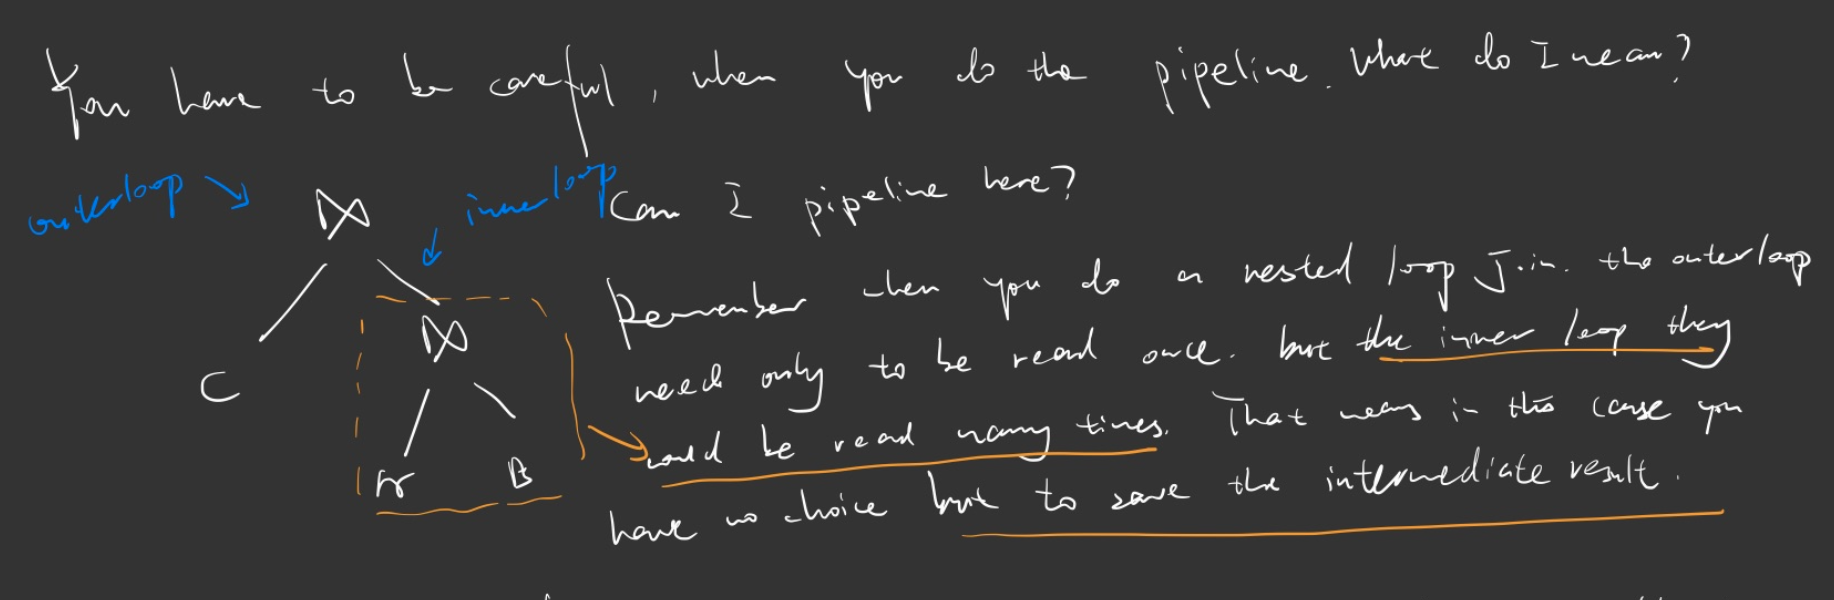 You have to be careful, when you do the pipeline. What do I mean?
outerloop
innerloop
Can I pipeline here?
⋈
Remember when you do a nested loop Join. the outerloop
⋈
need only to be read once. but the inner loop they
C
would be read many times. That means in this case you
A B
have no choice but to save the intermediate result.